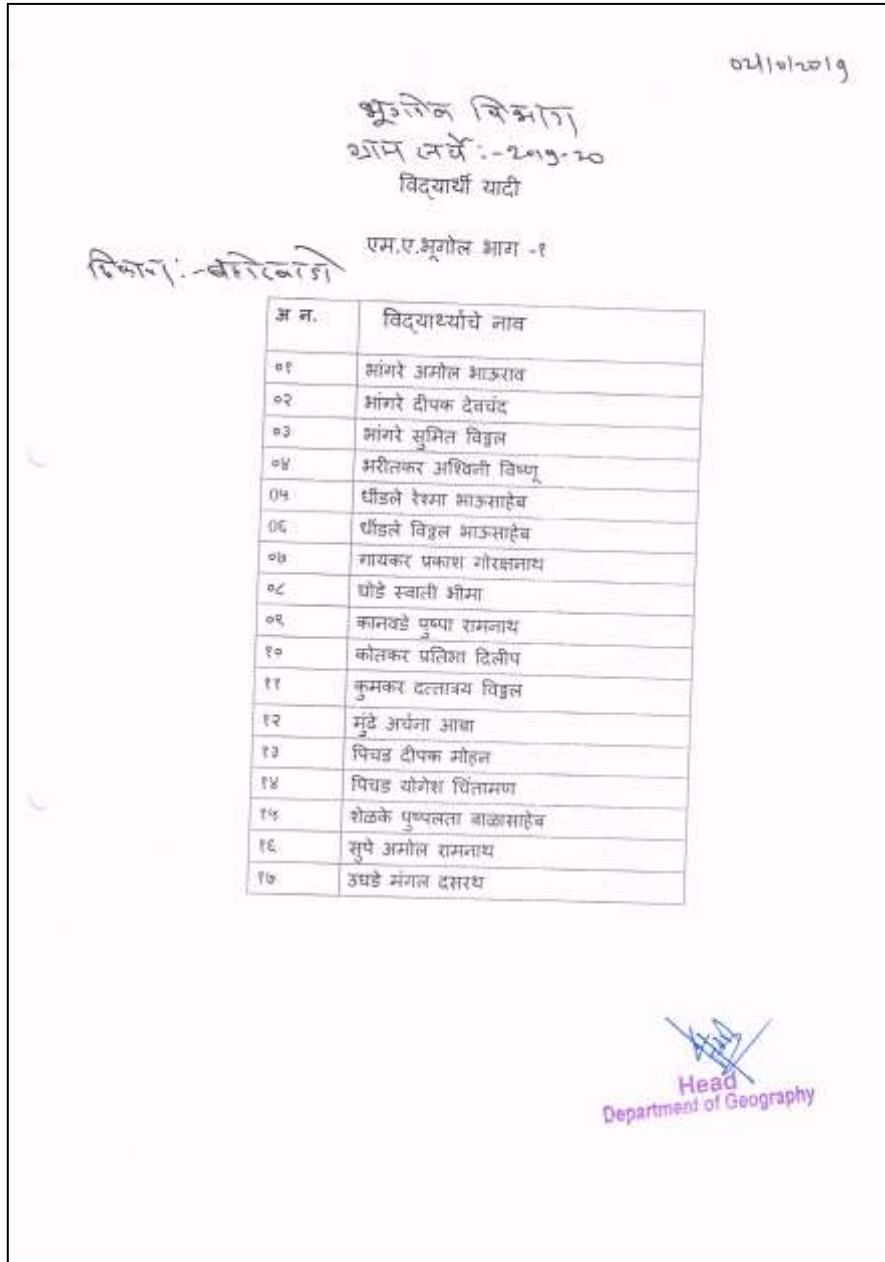 भूगोल विभाग
ग्राम सर्वे :- 2019-20
विद्यार्थी यादी
एम.ए.भूगोल भाग -१
ठिकाण :-
अ न. विद्यार्थ्याचे नाव
०१ भांगरे अमोल भाऊराव
०२ भांगरे दीपक देवचंद
०३ भांगरे सुमित विठ्ठल
०४ भरीतकर अश्विनी विष्णू
०५ धींडले रेश्मा भाऊसाहेब
०६ धींडले विठ्ठल भाऊसाहेब
०७ गायकर प्रकाश गोरक्षनाथ
०८ घोडे स्वाती भीमा
०९ कानवडे पुष्पा रामनाथ
१० कोतकर प्रतिभा दिलीप
११ कुमकर दत्तात्रय विठ्ठल
१२ मुंढे अर्चना आबा
१३ पिचड दीपक मोहन
१४ पिचड योगेश चिंतामण
१५ शेळके पुष्पलता बाळासाहेब
१६ सुपे अमोल रामनाथ
१७ उघडे मंगल दसरथ
Head
Department of Geography